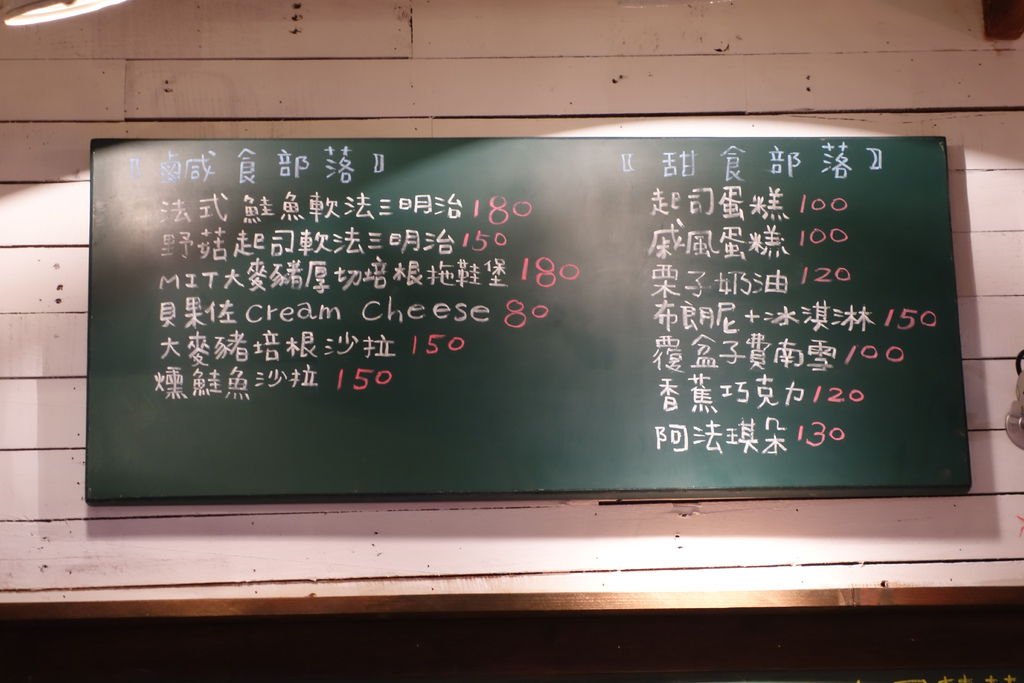 〖鹹食部落〗
法式鮭魚軟法三明治180
野菇起司軟法三明治150
MIT大麥豬厚切培根拖鞋堡180
貝果佐cream cheese 80
大麥豬培根沙拉150
燻鮭魚沙拉150
〖甜食部落〗
起司蛋糕100
戚風蛋糕100
栗子奶油120
布朗尼+冰淇淋150
覆盆子費南雪100
香蕉巧克力120
阿法琪朵130